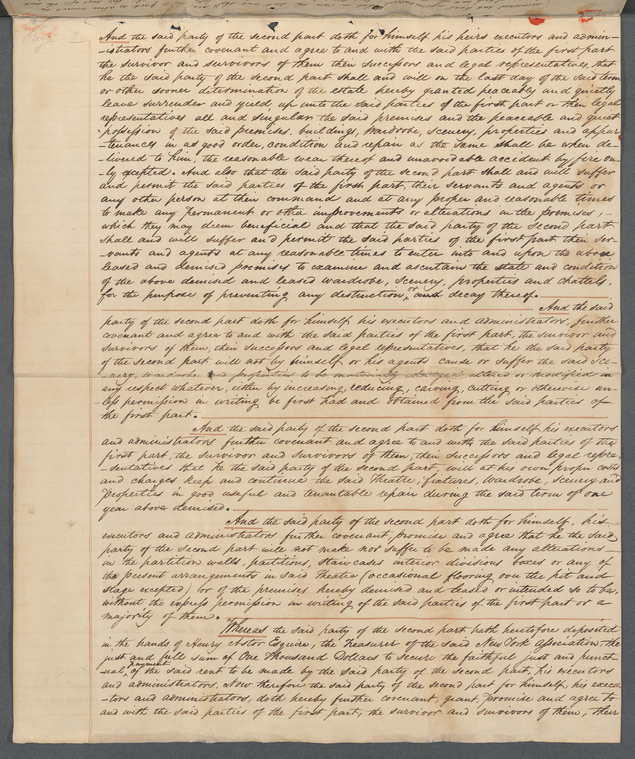 And the said party of the second part doth for himself his heirs executors and admin-
-istrators further covenant and agree to and with the said parties of the first part
the survivor and survivors of them their successors and legal representatives, that
he the said party of the second part shall and will on the last day of the said term
or other sooner determination of the estate hereby granted peaceably and quietly
leave surrender and yield up unto the said parties of the first part or their legal
representatives all and singular the said premises and the peaceable and quiet
possession of the said premises, buildings, wardrobe, scenery, properties and appur
-tenances in as good order, condition and repair as the same shall be when de-
-livered to him, the reasonable wear thereof and unavoidable accident by fire on-
-ly excepted. And also that the said party of the second part shall and will suffer
and permit the said parties of the first part, their servants and agents or
any other person at their command and at any proper and reasonable times
to make any permanent or other improvements or alterations in the premises,
which they may deem beneficial and that the said party of the second part
shall and will suffer and permit the said parties of the first part their ser-
-vants and agents at any reasonable times to enter into and upon the above
leased and demised premises to examine and ascertain the state and condition
of the above demised and leased wardrobe, scenery, properties and chattels
for the purpose of preventing any destruction, or decay thereof.
And the said
party of the second part doth for himself, his executors and administrators further
covenant and agree to and with the said parties of the first part, the survivor and
survivors of them, their successors and legal representatives, that he the said party
of the second part will not by himself or his agents cause or suffer the said sce-
-nery, wardrobe and properties to be materially changed altered or modified in
any respect whatever, either by increasing, reducing, carving, cutting or otherwise un-
less permission in writing be first had and obtained from the said parties of
the first part.
And the said party of the second part doth for himself, his executors
and administrators further covenant and agree to and with the said parties of the
first part, the survivor and survivors of them, their successors and legal repre-
-sentatives that he the said party of the second part, will at his own proper costs
and charges keep and continue the said Theatre, fixtures, wardrobe, scenery and
properties in good useful and tenantable repair during the said term of one
year above demised.
And the said party of the second part doth for himself, his
executors and administrators further covenant, promise and agree that he the said
party of the second part will not make nor suffer to be made any alterations
in the partition walls, partitions, staircases interior divisions boxes or any of
the present arrangements in said Theatre (occasional flooring over the pit and
stage excepted) or of the premises hereby demised and leased or intended so to be,
without the express permission in writing of the said parties of the first part or a
majority of them.
Whereas the said party of the second part hath heretofore deposited
in the hands of Henry Astor Esquire, the Treasurer of the said New York Association, the
just and full sum of One Thousand Dollars to secure the faithful just and punct-
ual payment of the said rent to be made by the said party of the second part, his executors
and administrators, Now therefore the said party of the second part for himself, his execu
-tors and administrators, doth hereby further covenant, grant, promise and agree to
and with the said parties of the first part, the survivor and survivors of them, their